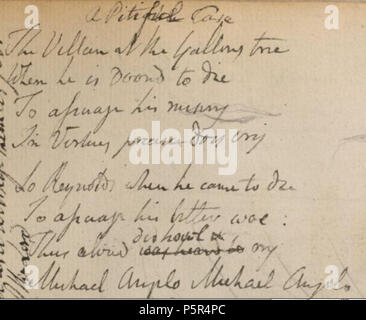 A Pitiful Case
The Villain at the Gallows tree
When he is Doomd to die
To assuage his misery
In Virtues praise does cry
So Reynolds when he came to die
To assuage his bitter woe:
Thus aloud did howl & cry
Michael Angelo Michael Angelo